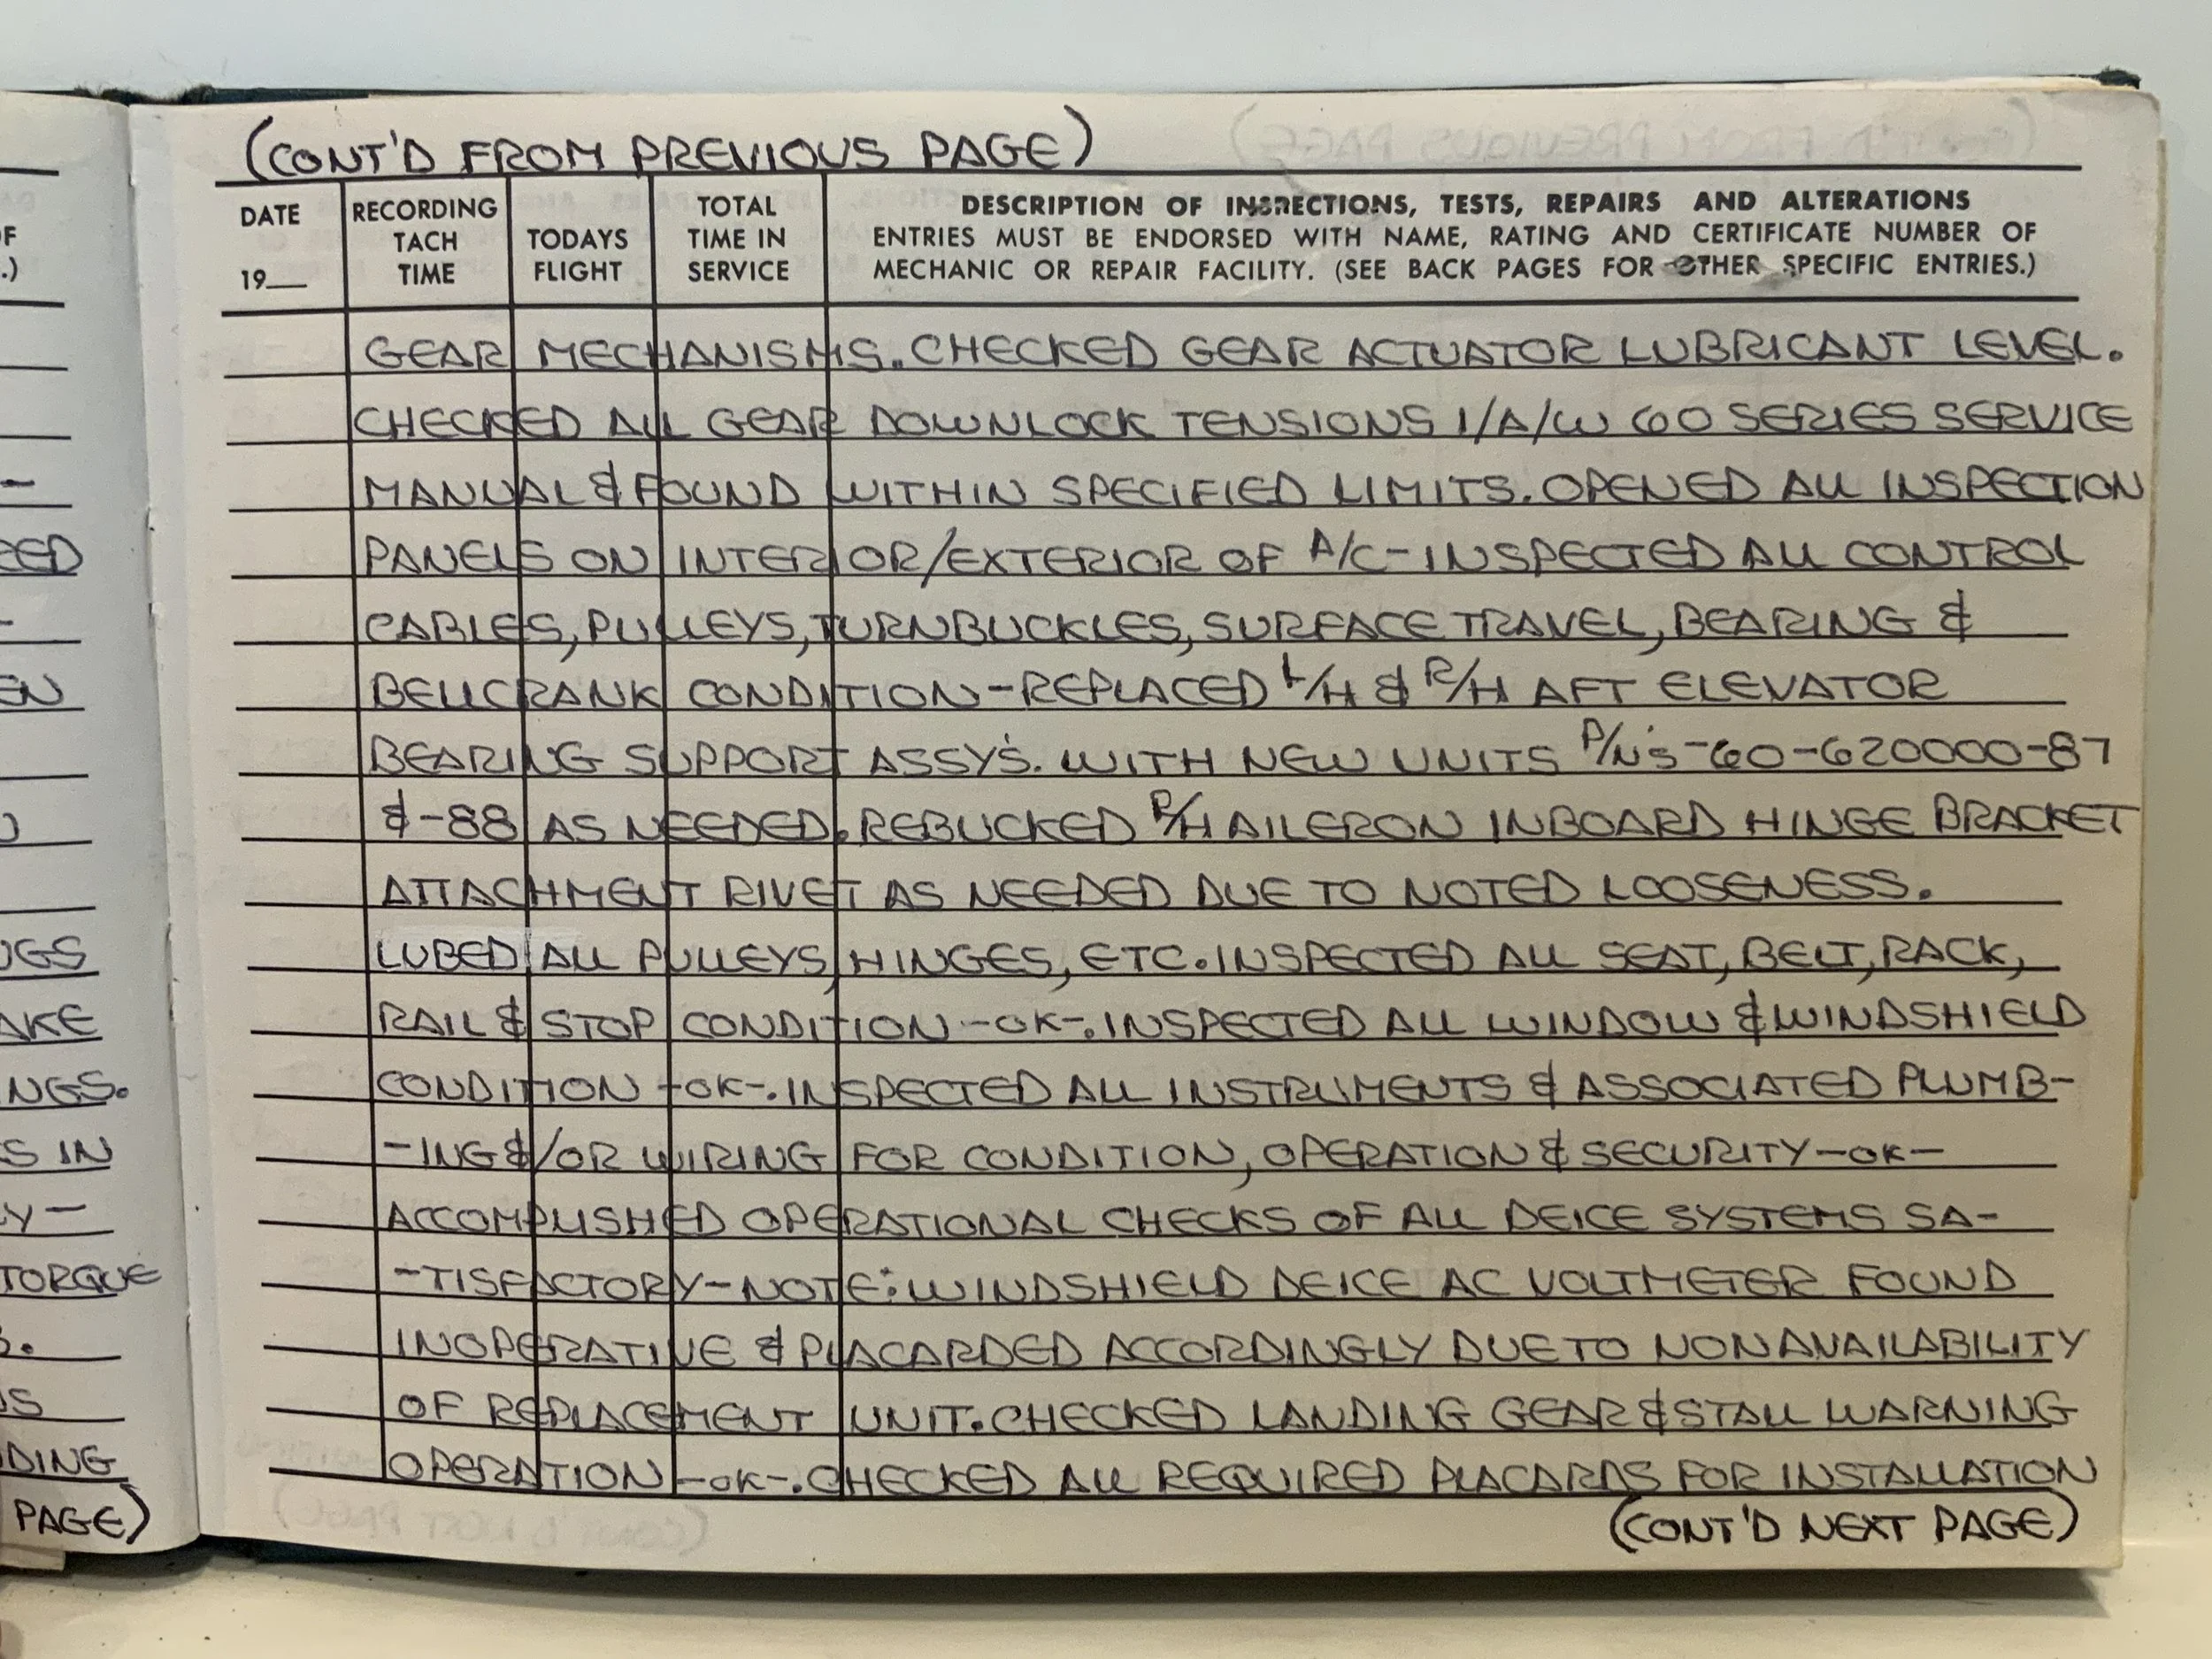 (CONT'D FROM PREVIOUS PAGE)
DATE
19__
RECORDING
TACH
TIME
TODAYS
FLIGHT
TOTAL
TIME IN
SERVICE
DESCRIPTION OF INSPECTIONS, TESTS, REPAIRS AND ALTERATIONS
ENTRIES MUST BE ENDORSED WITH NAME, RATING AND CERTIFICATE NUMBER OF
MECHANIC OR REPAIR FACILITY. (SEE BACK PAGES FOR OTHER SPECIFIC ENTRIES.)
GEAR MECHANISMS. CHECKED GEAR ACTUATOR LUBRICANT LEVEL.
CHECKED ALL GEAR DOWNLOCK TENSIONS I/A/W 60 SERIES SERVICE
MANUAL & FOUND WITHIN SPECIFIED LIMITS. OPENED ALL INSPECTION
PANELS ON INTERIOR/EXTERIOR OF A/C-INSPECTED ALL CONTROL
CABLES, PULLEYS, TURNBUCKLES, SURFACE TRAVEL, BEARING &
BELLCRANK CONDITION-REPLACED L/H & R/H AFT ELEVATOR
BEARING SUPPORT ASSY'S. WITH NEW UNITS P/N'S-60-620000-87
&-88 AS NEEDED. REBUCKED R/H AILERON INBOARD HINGE BRACKET
ATTACHMENT RIVET AS NEEDED DUE TO NOTED LOOSENESS.
LUBED ALL PULLEYS, HINGES, ETC. INSPECTED ALL SEAT, BELT, RACK,
RAIL & STOP CONDITION -OK-. INSPECTED ALL WINDOW & WINDSHIELD
CONDITION -OK-. INSPECTED ALL INSTRUMENTS & ASSOCIATED PLUMB-
-ING &/OR WIRING FOR CONDITION, OPERATION & SECURITY-OK-
ACCOMPLISHED OPERATIONAL CHECKS OF ALL DEICE SYSTEMS SA-
-TISFACTORY-NOTE: WINDSHIELD DEICE AC VOLTMETER FOUND
INOPERATIVE & PLACARDED ACCORDINGLY DUE TO NONAVAILABILITY
OF REPLACEMENT UNIT. CHECKED LANDING GEAR & STALL WARNING
OPERATION -OK-. CHECKED ALL REQUIRED PLACARDS FOR INSTALLATION
(CONT'D NEXT PAGE)